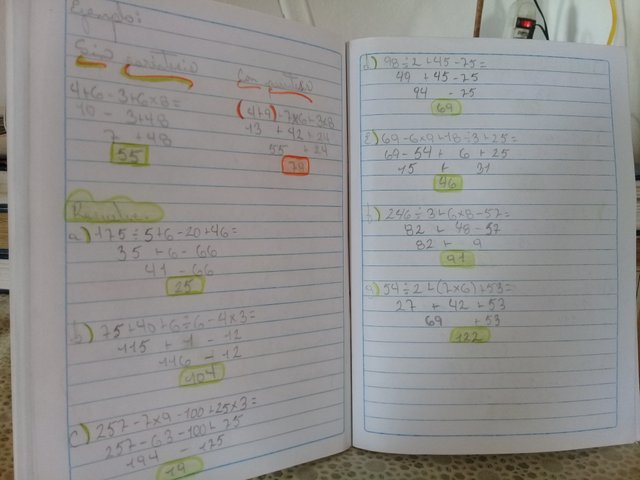 Ejemplo:
Sin paréntesis
4+6-3+6x8=
10 - 3+48
7 + 48
55
Con
(4+9)-7x6+3x8
13 + 42 + 24
55 + 24
79
Resolver
a) 175÷5+6-20+46=
35 + 6 - 66
41 - 66
25
b) 75+40+6÷6-4x3=
115 + 1 - 12
116 - 12
104
c) 257-7x9-100+25x3=
257-63-100+75
194 - 175
19
d) 98÷2+45-75=
49 + 45-75
94 - 75
69
e) 69-6x9+48÷3+25=
69-54+ 6+25
15 + 31
46
f) 246÷3+6x8-57=
82 + 48-57
82 + 9
91
g) 54÷2+(7x6)+53=
27 + 42 +53
69 +53
122